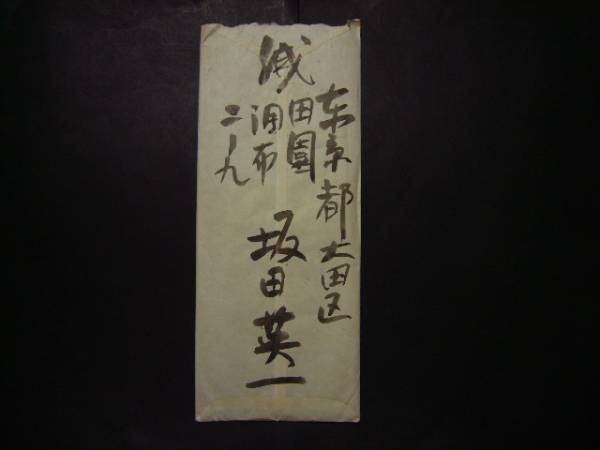 緘
東京都大田区
田園
調布
二ー九
坂田英一